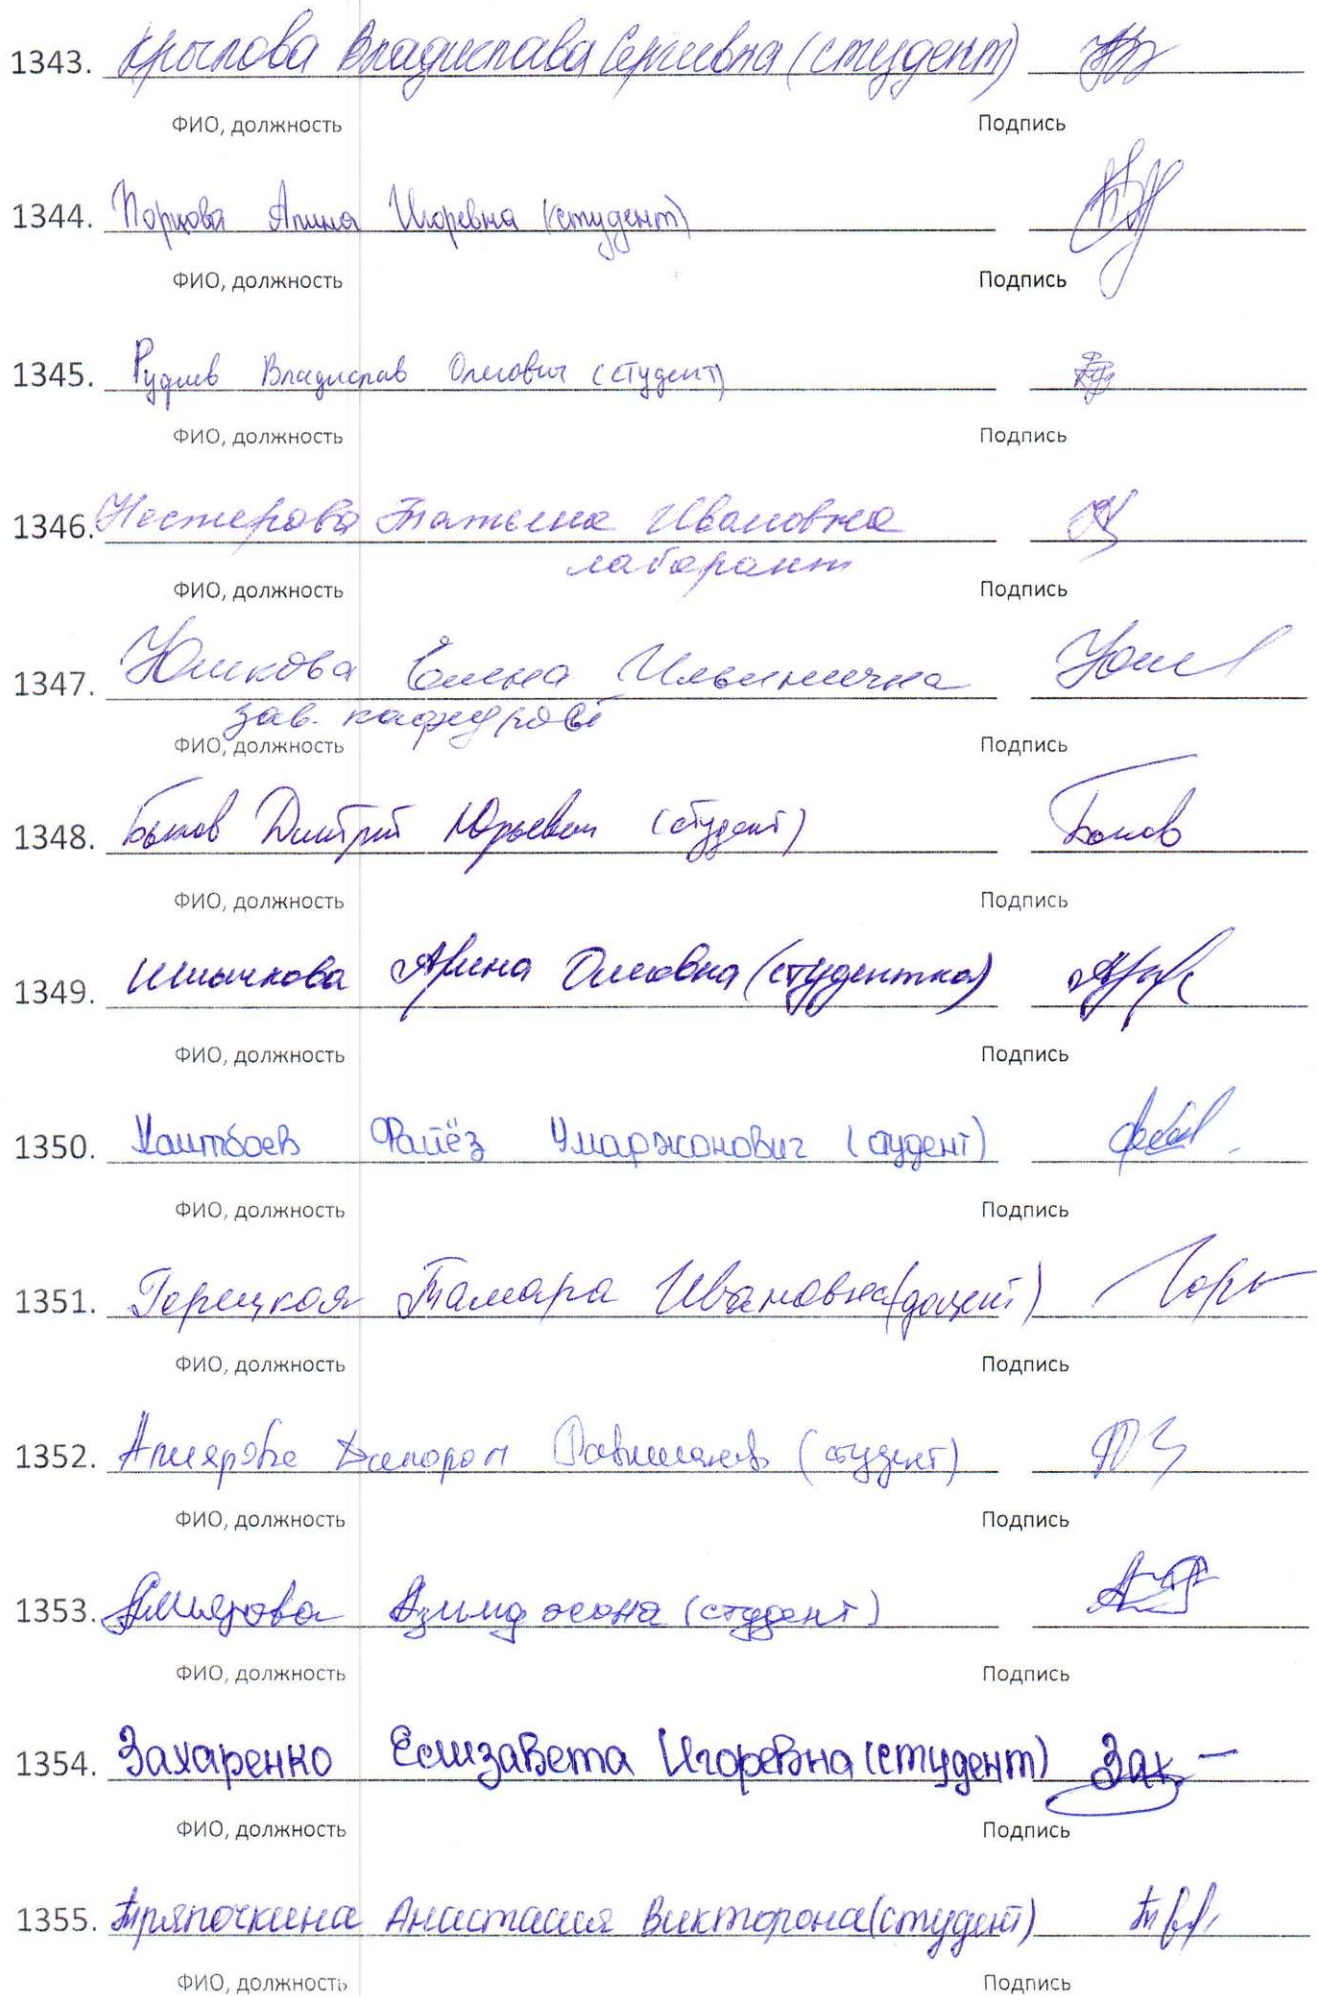 1343. Крылова Владислава Сергеевна (студент)
ФИО, должность Подпись
1344. Норкова Алина Игоревна (студент)
ФИО, должность Подпись
1345. Рудиев Владислав Олегович (студент)
ФИО, должность Подпись
1346. Нестерова Татьяна Ивановна
лаборант
ФИО, должность Подпись
1347. Юшкова Елена Ильинична
зав. кафедрой
ФИО, должность Подпись
1348. Быков Дмитрий Юрьевич (студент) Быков
ФИО, должность Подпись
1349. Шмычкова Арина Олеговна (студентка)
ФИО, должность Подпись
1350. Хаитбоев Фаиёз Умаржонович (студент)
ФИО, должность Подпись
1351. Горецкая Тамара Ивановна (доцент)
ФИО, должность Подпись
1352. (студент)
ФИО, должность Подпись
1353. Азимджона (студент)
ФИО, должность Подпись
1354. Захаренко Елизавета Игоревна (студент) Зах
ФИО, должность Подпись
1355. Тряпочкина Анастасия Викторона (студент)
ФИО, должность Подпись